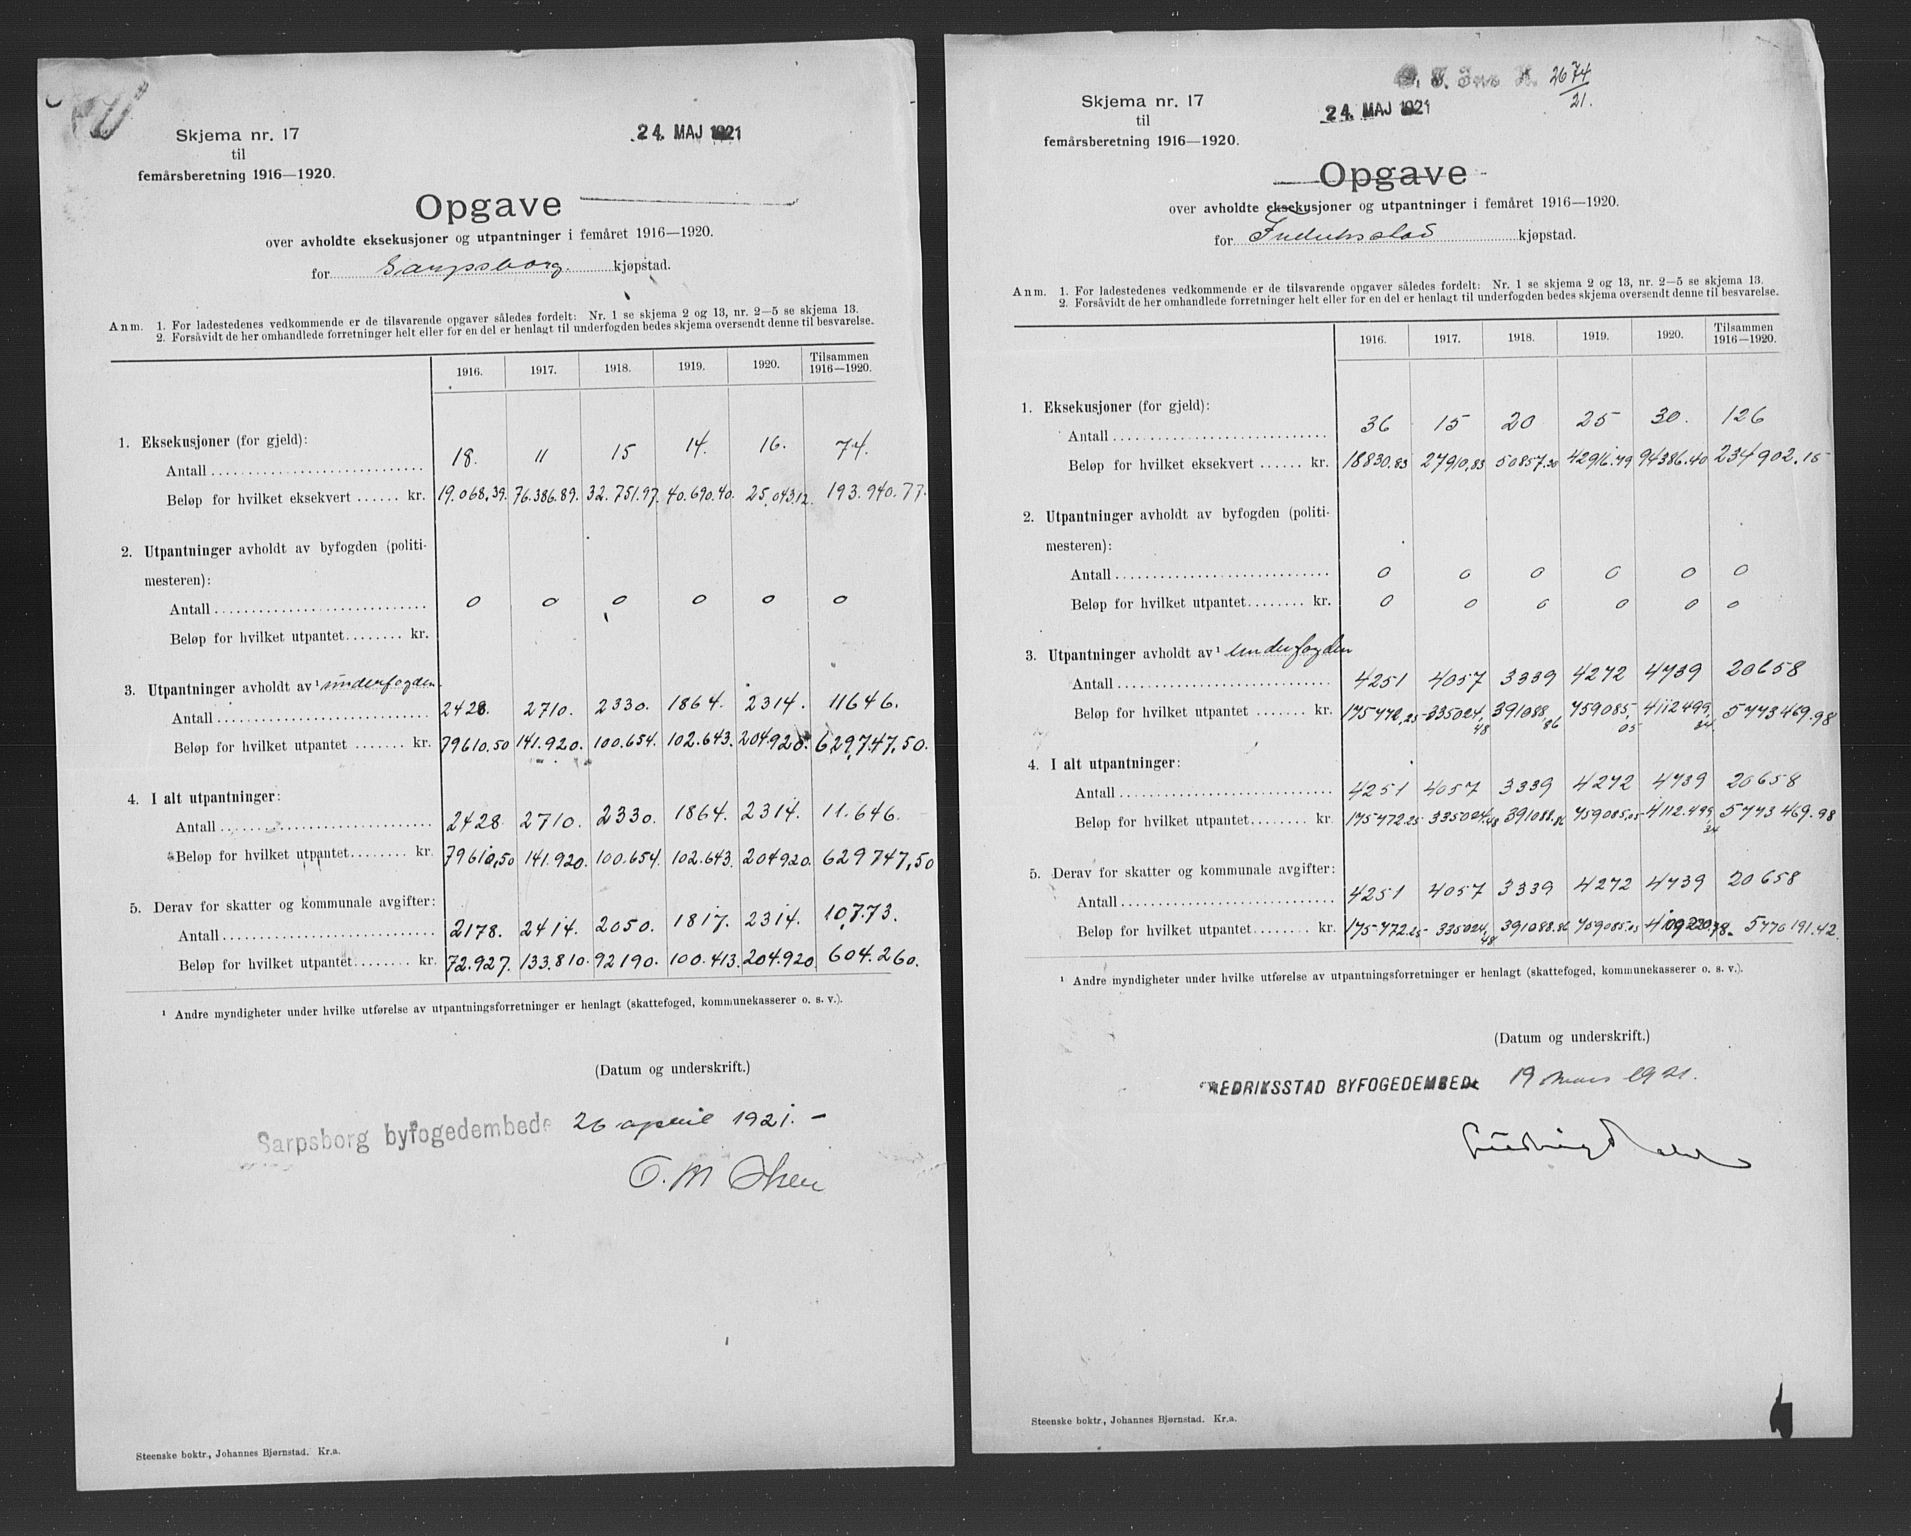 Skjema nr. 17
til
femårsberetning 1916—1920.
24. MAJ 1921
Opgave
over avholdte eksekusjoner og utpantninger i femåret 1916—1920.
for Sarpsborg kjøpstad.
Anm. 1. For ladestedenes vedkommende er de tilsvarende opgaver således fordelt: Nr. 1 se skjema 2 og 13, nr. 2—5 se skjema 13.
2. Forsåvidt de her omhandlede forretninger helt eller for en del er henlagt til underfogden bedes skjema oversendt denne til besvarelse.
1916. 1917. 1918. 1919. 1920. Tilsammen 1916—1920.
1. Eksekusjoner (for gjeld):
Antall 18. 11 15 14. 16. 74.
Beløp for hvilket eksekvert kr. 19.068.39. 76.386.89. 32.751.97. 40.690.40. 25.043.12. 193.940.77.
2. Utpantninger avholdt av byfogden (politi-
mesteren):
Antall 0 0 0 0 0 0
Beløp for hvilket utpantet kr.
3. Utpantninger avholdt av¹ underfogden
Antall 2428. 2710. 2330. 1864. 2314. 11646.
Beløp for hvilket utpantet kr. 79610.50 141.920. 100.654. 102.643. 204.920. 629,747,50.
4. I alt utpantninger:
Antall 2428 2710. 2330. 1864. 2314. 11.646.
Beløp for hvilket utpantet kr. 79610,50 141.920. 100.654. 102.643. 204920. 629747,50
5. Derav for skatter og kommunale avgifter:
Antall 2178. 2414. 2050. 1817. 2314. 10,773.
Beløp for hvilket utpantet kr. 72.927. 133.810. 92190. 100.413. 204.920. 604.260.
¹ Andre myndigheter under hvilke utførelse av utpantningsforretninger er henlagt (skattefoged, kommunekasserer o. s. v.).
(Datum og underskrift.)
Sarpsborg byfogedembede 26 april 1921. –
O. M. Olsen
Steenske boktr., Johannes Bjørnstad. Kr.a.
2674
21.
Skjema nr. 17
til
femårsberetning 1916—1920.
24. MAJ 1921
Opgave
over avholdte eksekusjoner og utpantninger i femåret 1916—1920.
for Fredriksstad kjøpstad.
Anm. 1. For ladestedenes vedkommende er de tilsvarende opgaver således fordelt: Nr. 1 se skjema 2 og 13, nr. 2—5 se skjema 13.
2. Forsåvidt de her omhandlede forretninger helt eller for en del er henlagt til underfogden bedes skjema oversendt denne til besvarelse.
1916. 1917. 1918. 1919. 1920. Tilsammen 1916—1920.
1. Eksekusjoner (for gjeld):
Antall 36 15 20 25 30. 126
Beløp for hvilket eksekvert kr. 18830.83 27910.83 50857.30 42916.79 94386.40 234902.15
2. Utpantninger avholdt av byfogden (politi-
mesteren):
Antall 0 0 0 0 0 0
Beløp for hvilket utpantet kr. 0 0 0 0 0 0
3. Utpantninger avholdt av¹ Underfogden
Antall 4251 4057 3339 4272 4739 20658
Beløp for hvilket utpantet kr. 175772,25 335024,48 391088,86 759085,05 4112499,34 5773469.98
4. I alt utpantninger:
Antall 4251 4057 3339 4272 4739 20658
Beløp for hvilket utpantet kr. 175772.25 335024.48 391088.86 759085.05 4112.499,34 5773469.98
5. Derav for skatter og kommunale avgifter:
Antall 4251 4057 3339 4272 4739 20658
Beløp for hvilket utpantet kr. 175772.25 335024,48 391088.86 759085.05 4109220.78. 5770191.42.
¹ Andre myndigheter under hvilke utførelse av utpantningsforretninger er henlagt (skattefoged, kommunekasserer o. s. v.).
(Datum og underskrift.)
FREDRIKSSTAD BYFOGEDEMBEDE 19 mars 1921.
Steenske boktr., Johannes Bjørnstad. Kr.a.